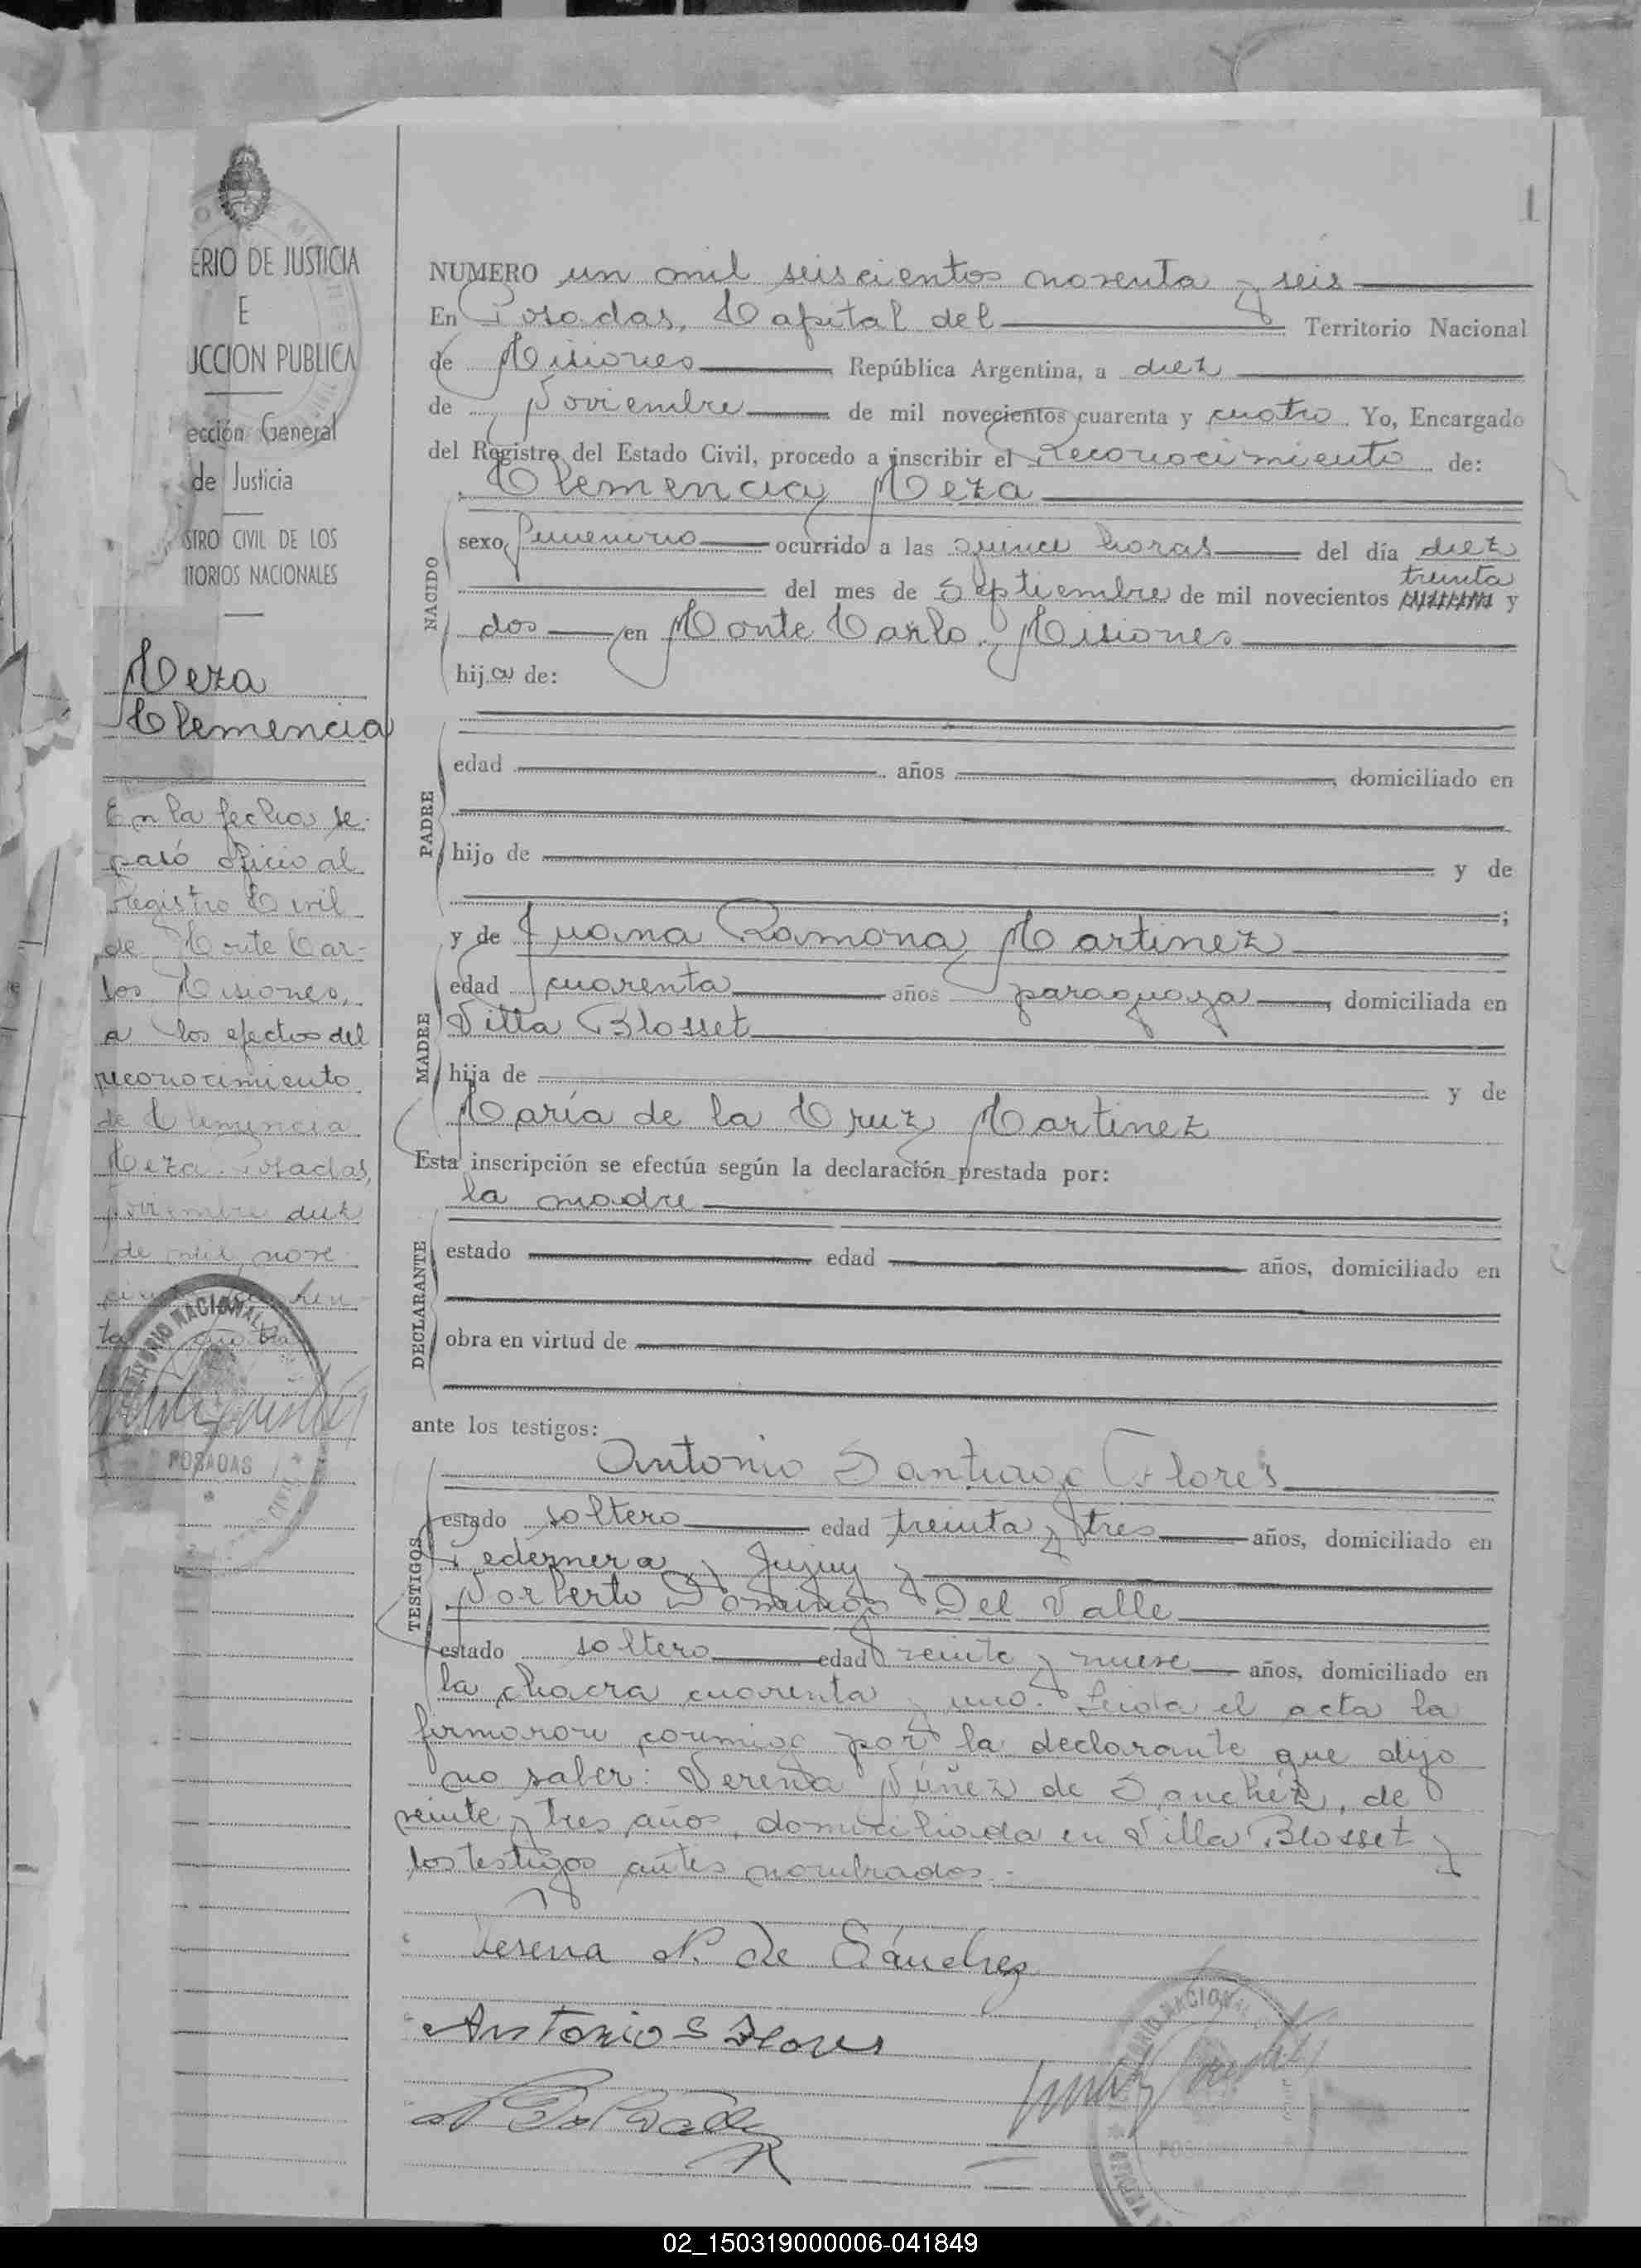 ERIO DE JUSTICIA
E
UCCION PUBLICA
ección General
de Justicia
STRO CIVIL DE LOS
ITORIOS NACIONALES
Meza
Clemencia
En la fecha se
pasó oficio al
Registro Civil
de Monte Car-
los Misiones,
a los efectos del
reconocimiento
de Clemencia
Meza. Posadas,
Noviembre diez
de mil nove
cuaren
ta cuatro
TORIO NACIONAL
POSADAS
1
NUMERO un mil seiscientos noventa y seis
En Posadas, Capital del Territorio Nacional
de Misiones República Argentina, a diez
de Noviembre de mil novecientos cuarenta y cuatro. Yo, Encargado
del Registro del Estado Civil, procedo a inscribir el Reconocimiento de:
Clemencia Meza
NACIDO
sexo femenino ocurrido a las quince horas del día diez
treinta
del mes de Septiembre de mil novecientos y
dos en Monte Carlo. Misiones
hija de:
PADRE
edad años domiciliado en
hijo de y de
MADRE
y de Juana Ramona Martinez
edad cuarenta años paraguaya, domiciliada en
Villa Blosset
hija de y de
María de la Cruz Martinez
Esta inscripción se efectúa según la declaración prestada por:
la madre
DECLARANTE
estado edad años, domiciliado en
obra en virtud de
ante los testigos:
TESTIGOS
Antonio Santiago Flores
estado soltero edad treinta y tres años, domiciliado en
Pedernera y Jujuy y
Norberto Domingo Del Valle
estado soltero edad veinte y nueve años, domiciliado en
la chacra cuarenta y uno. Leida el acta la
firmaron conmigo por la declarante que dijo
no saber: Verena Núñez de Sanchez, de
veinte y tres años, domiciliada en Villa Blosset y
los testigos antes nombrados.-
Verena N. de Sánchez
Antonio S Flores
N Del Valle
02_150319000006-041849